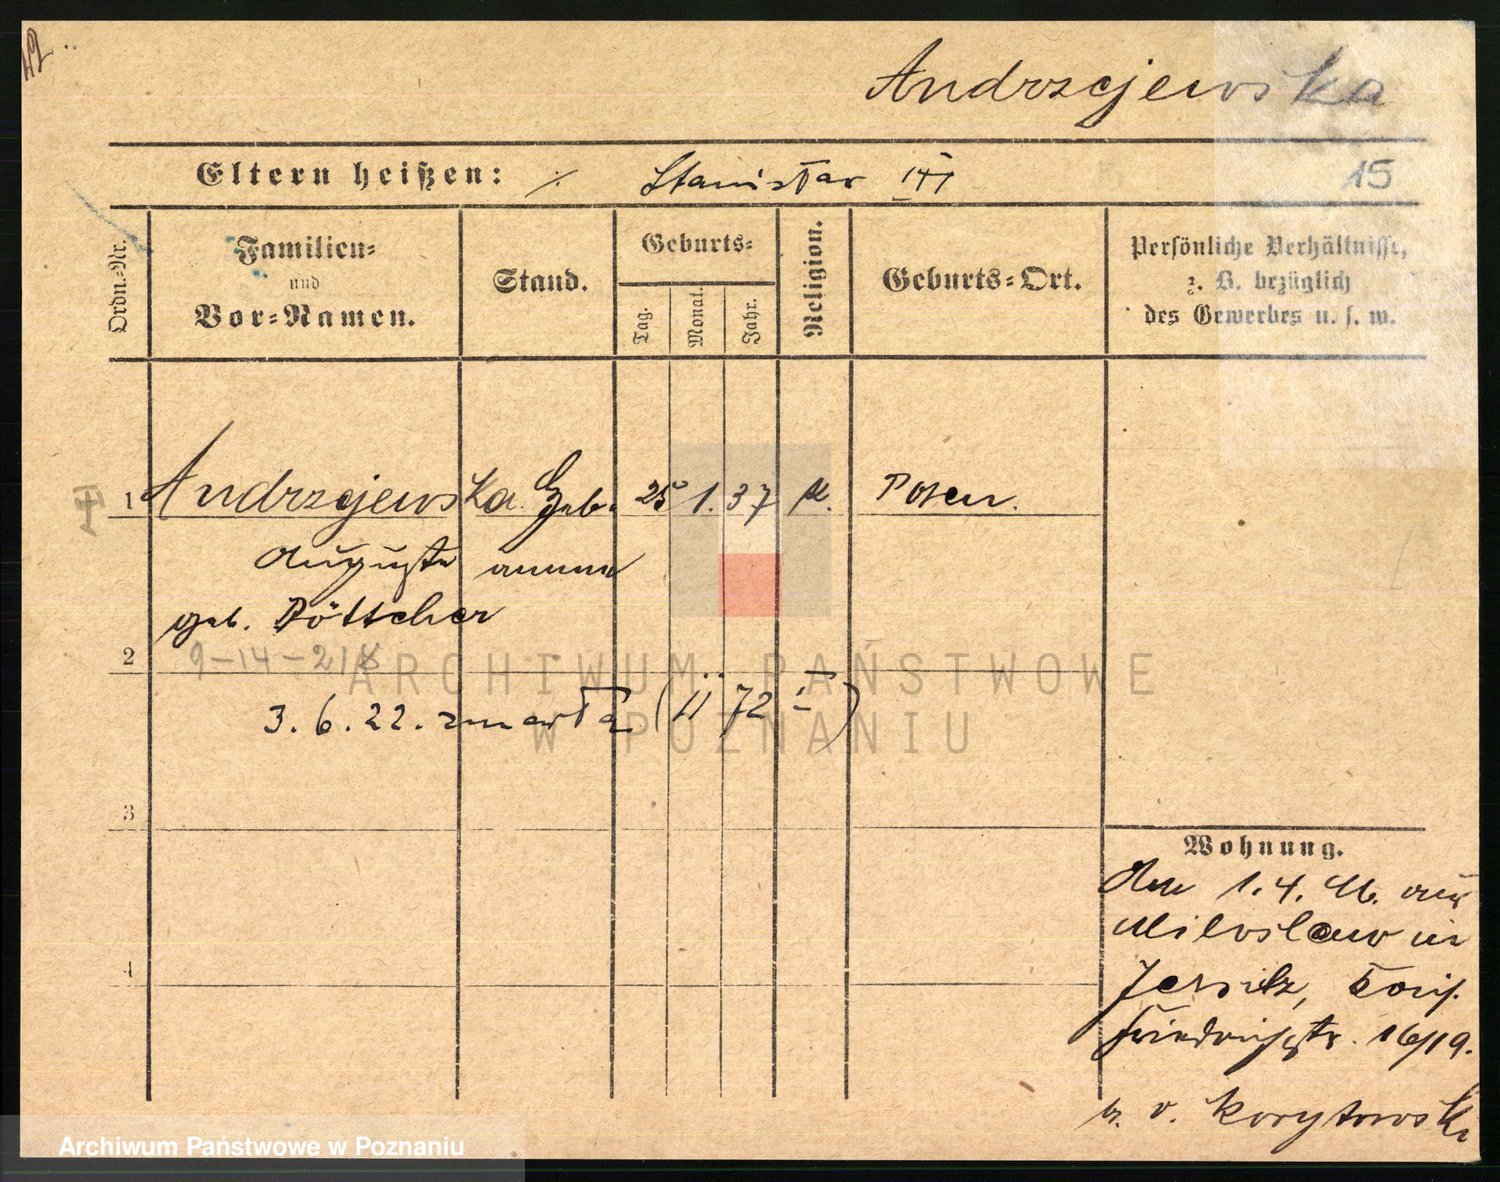 Andrzejewska
Eltern heißen: ⁒ Stanislav III
15
Ordn.-Nr.
Familien-
und
Vor-Namen.
Stand.
Geburts-
Tag.
Monat.
Jahr.
Religion.
Geburts-Ort.
Persönliche Verhältnisse,
z. B. bezüglich
des Gewerbes u. s. w.
1 Andrzejewska geb. 25 1. 37 k. Posen.
Auguste
geb. Böttcher
2
9-14-21
3.6.22. zmarła (II 72 I)
3
4
Wohnung.
1.4. aus
Miloslaw in
Jersitz, Kais.
Friedrichstr. 16/19.
b. v. Korytowski
ARCHIWUM PAŃSTWOWE
W POZNANIU
Archiwum Państwowe w Poznaniu